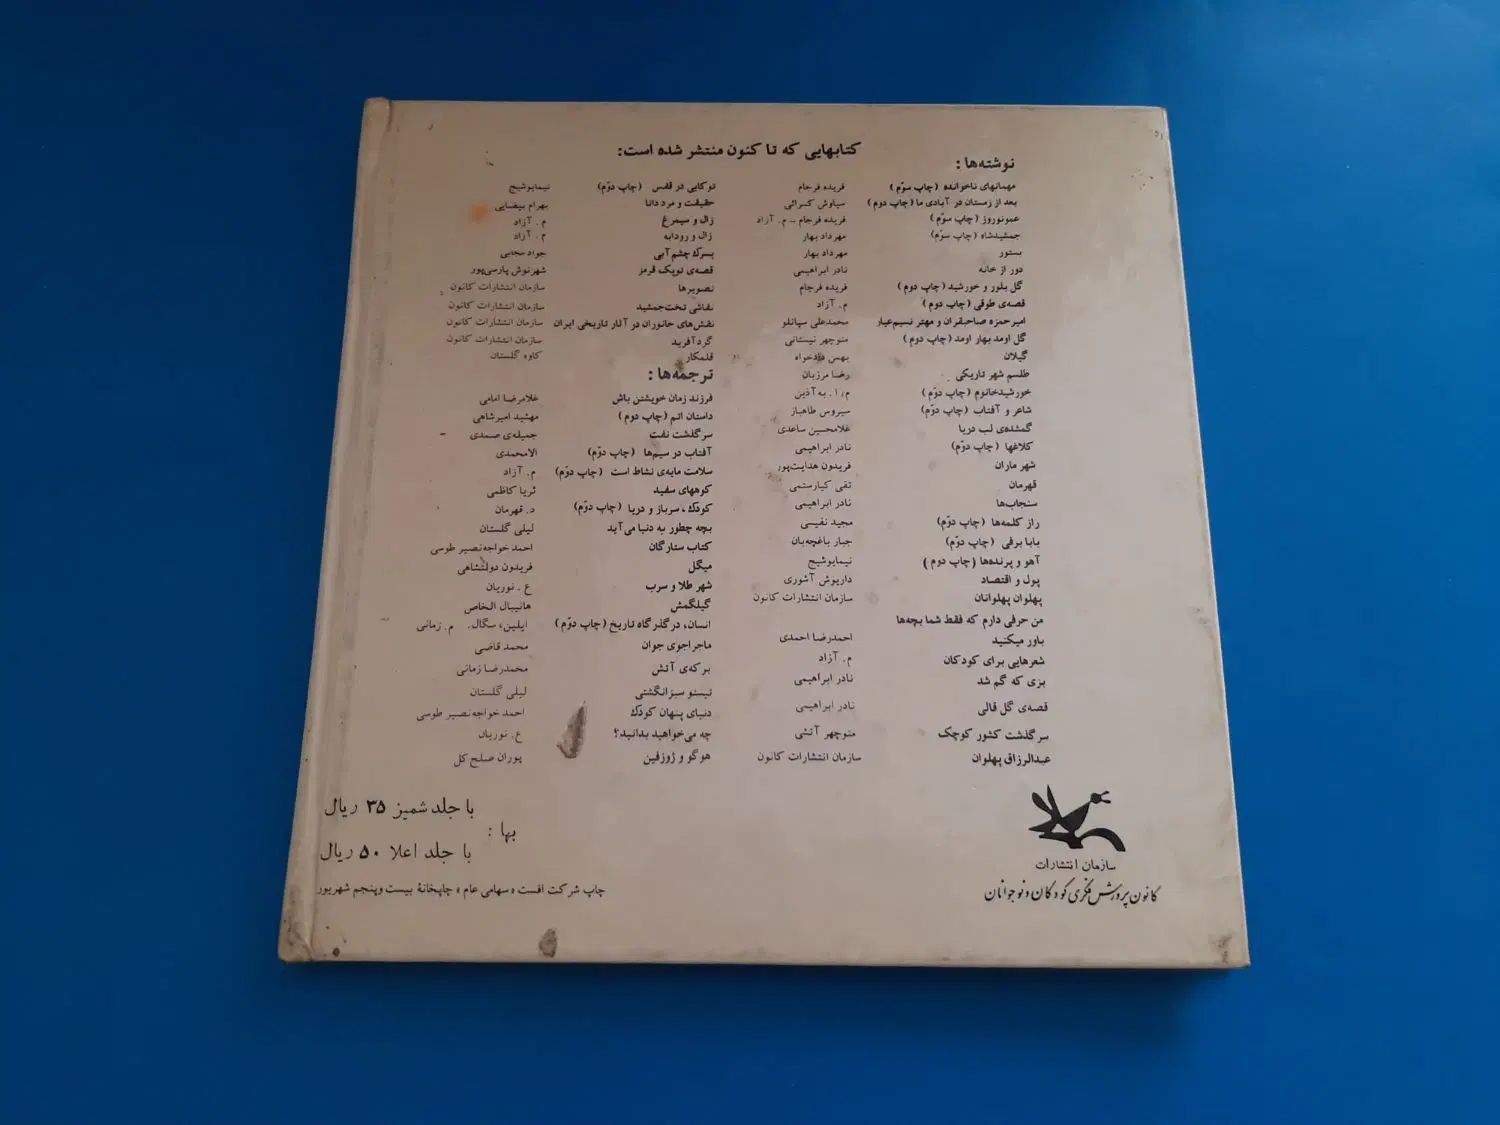 کتابهایی که تا کنون منتشر شده است:
نوشته‌ها:
مهمانهای ناخوانده (چاپ سوّم) فریده فرجام
بعد از زمستان در آبادی ما (چاپ دوم) سیاوش کسرائی
عمونوروز (چاپ سوّم) فریده فرجام – م. آزاد
جمشیدشاه (چاپ سوّم) مهرداد بهار
بستور مهرداد بهار
دور از خانه نادر ابراهیمی
گل بلور و خورشید (چاپ دوم) فریده فرجام
قصه‌ی طوقی (چاپ دوم) م. آزاد
امیرحمزه صاحبقران و مهتر نسیم‌عیار محمدعلی سپانلو
گل اومد بهار اومد (چاپ دوم) منوچهر نیستانی
گیلان بهمن دادخواه
طلسم شهر تاریکی رضا مرزبان
خورشیدخانوم (چاپ دوّم) م.ا. به‌آذین
شاعر و آفتاب (چاپ دوّم) سیروس طاهباز
گمشده‌ی لب دریا غلامحسین ساعدی
کلاغها (چاپ دوّم) نادر ابراهیمی
شهر ماران فریدون هدایت‌پور
قهرمان تقی کیارستمی
سنجاب‌ها نادر ابراهیمی
راز کلمه‌ها (چاپ دوّم) مجید نفیسی
بابا برفی (چاپ دوّم) جبار باغچه‌بان
آهو و پرنده‌ها (چاپ دوم) نیمایوشیج
پول و اقتصاد داریوش آشوری
پهلوان پهلوانان سازمان انتشارات کانون
من حرفی دارم که فقط شما بچه‌ها
باور میکنید احمدرضا احمدی
شعرهایی برای کودکان م. آزاد
بزی که گم شد نادر ابراهیمی
قصه‌ی گل قالی نادر ابراهیمی
سرگذشت کشور کوچک منوچهر آتشی
عبدالرزاق پهلوان سازمان انتشارات کانون
توکایی در قفس (چاپ دوّم) نیمایوشیج
حقیقت و مرد دانا بهرام بیضایی
زال و سیمرغ م. آزاد
زال و رودابه م. آزاد
پسرك چشم‌آبی جواد مجابی
قصه‌ی توپک قرمز شهرنوش پارسی‌پور
تصویرها سازمان انتشارات کانون
نقاشی تخت‌جمشید سازمان انتشارات کانون
نقش‌های جانوران در آثار تاریخی ایران سازمان انتشارات کانون
گردآفرید سازمان انتشارات کانون
قلمکار کاوه گلستان
ترجمه‌ها:
فرزند زمان خویشتن باش غلامرضا امامی
داستان اتم (چاپ دوم) مهشید امیرشاهی
سرگذشت نفت جمیله‌ی صمدی
آفتاب در سیم‌ها (چاپ دوّم) الامحمدی
سلامت مایه‌ی نشاط است (چاپ دوّم) م. آزاد
کوههای سفید ثریا کاظمی
کودك، سرباز و دریا (چاپ دوّم) د. قهرمان
بچه چطور به دنیا می‌آید لیلی گلستان
کتاب ستارگان احمد خواجه‌نصیر طوسی
میگل فریدون دولتشاهی
شهر طلا و سرب ع. نوریان
گیلگمش هانیبال الخاص
انسان، در گذرگاه تاریخ (چاپ دوّم) ایلین، سگال. م. زمانی
ماجراجوی جوان محمد قاضی
برکه‌ی آتش محمدرضا زمانی
تیستو سبزانگشتی لیلی گلستان
دنیای پنهان کودك احمد خواجه‌نصیر طوسی
چه می‌خواهید بدانید؟ ع. نوریان
هوگو و ژوزفین پوران صلح کل
سازمان انتشارات
کانون پرورش فکری کودکان و نوجوانان
بها:
با جلد شمیز ۳۵ ریال
با جلد اعلا ۵۰ ریال
چاپ شرکت افست «سهامی عام» چاپخانهٔ بیست وپنجم شهریور